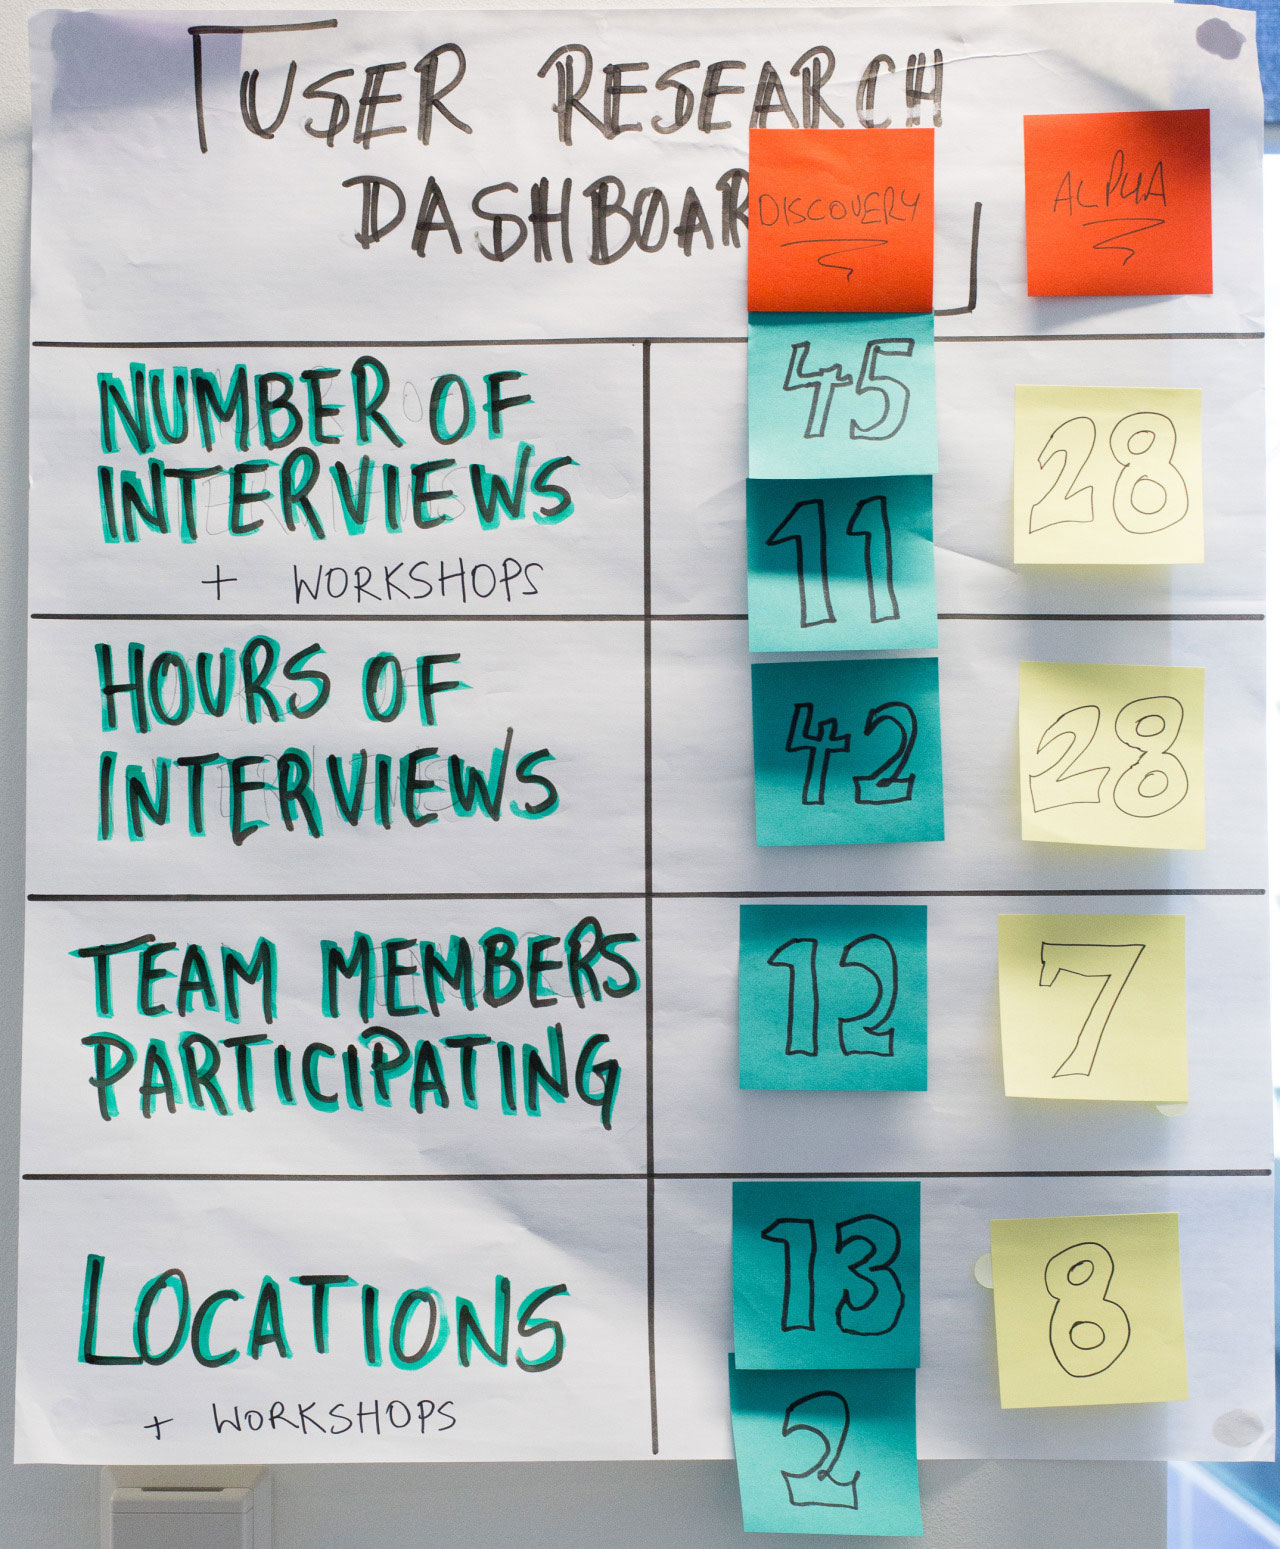 USER RESEARCH
DASHBOAR
DISCOVERY
ALPHA
NUMBER OF
INTERVIEWS
+ WORKSHOPS
45
11
28
HOURS OF
INTERVIEWS
42
28
TEAM MEMBERS
PARTICIPATING
12
7
LOCATIONS
+ WORKSHOPS
13
2
8